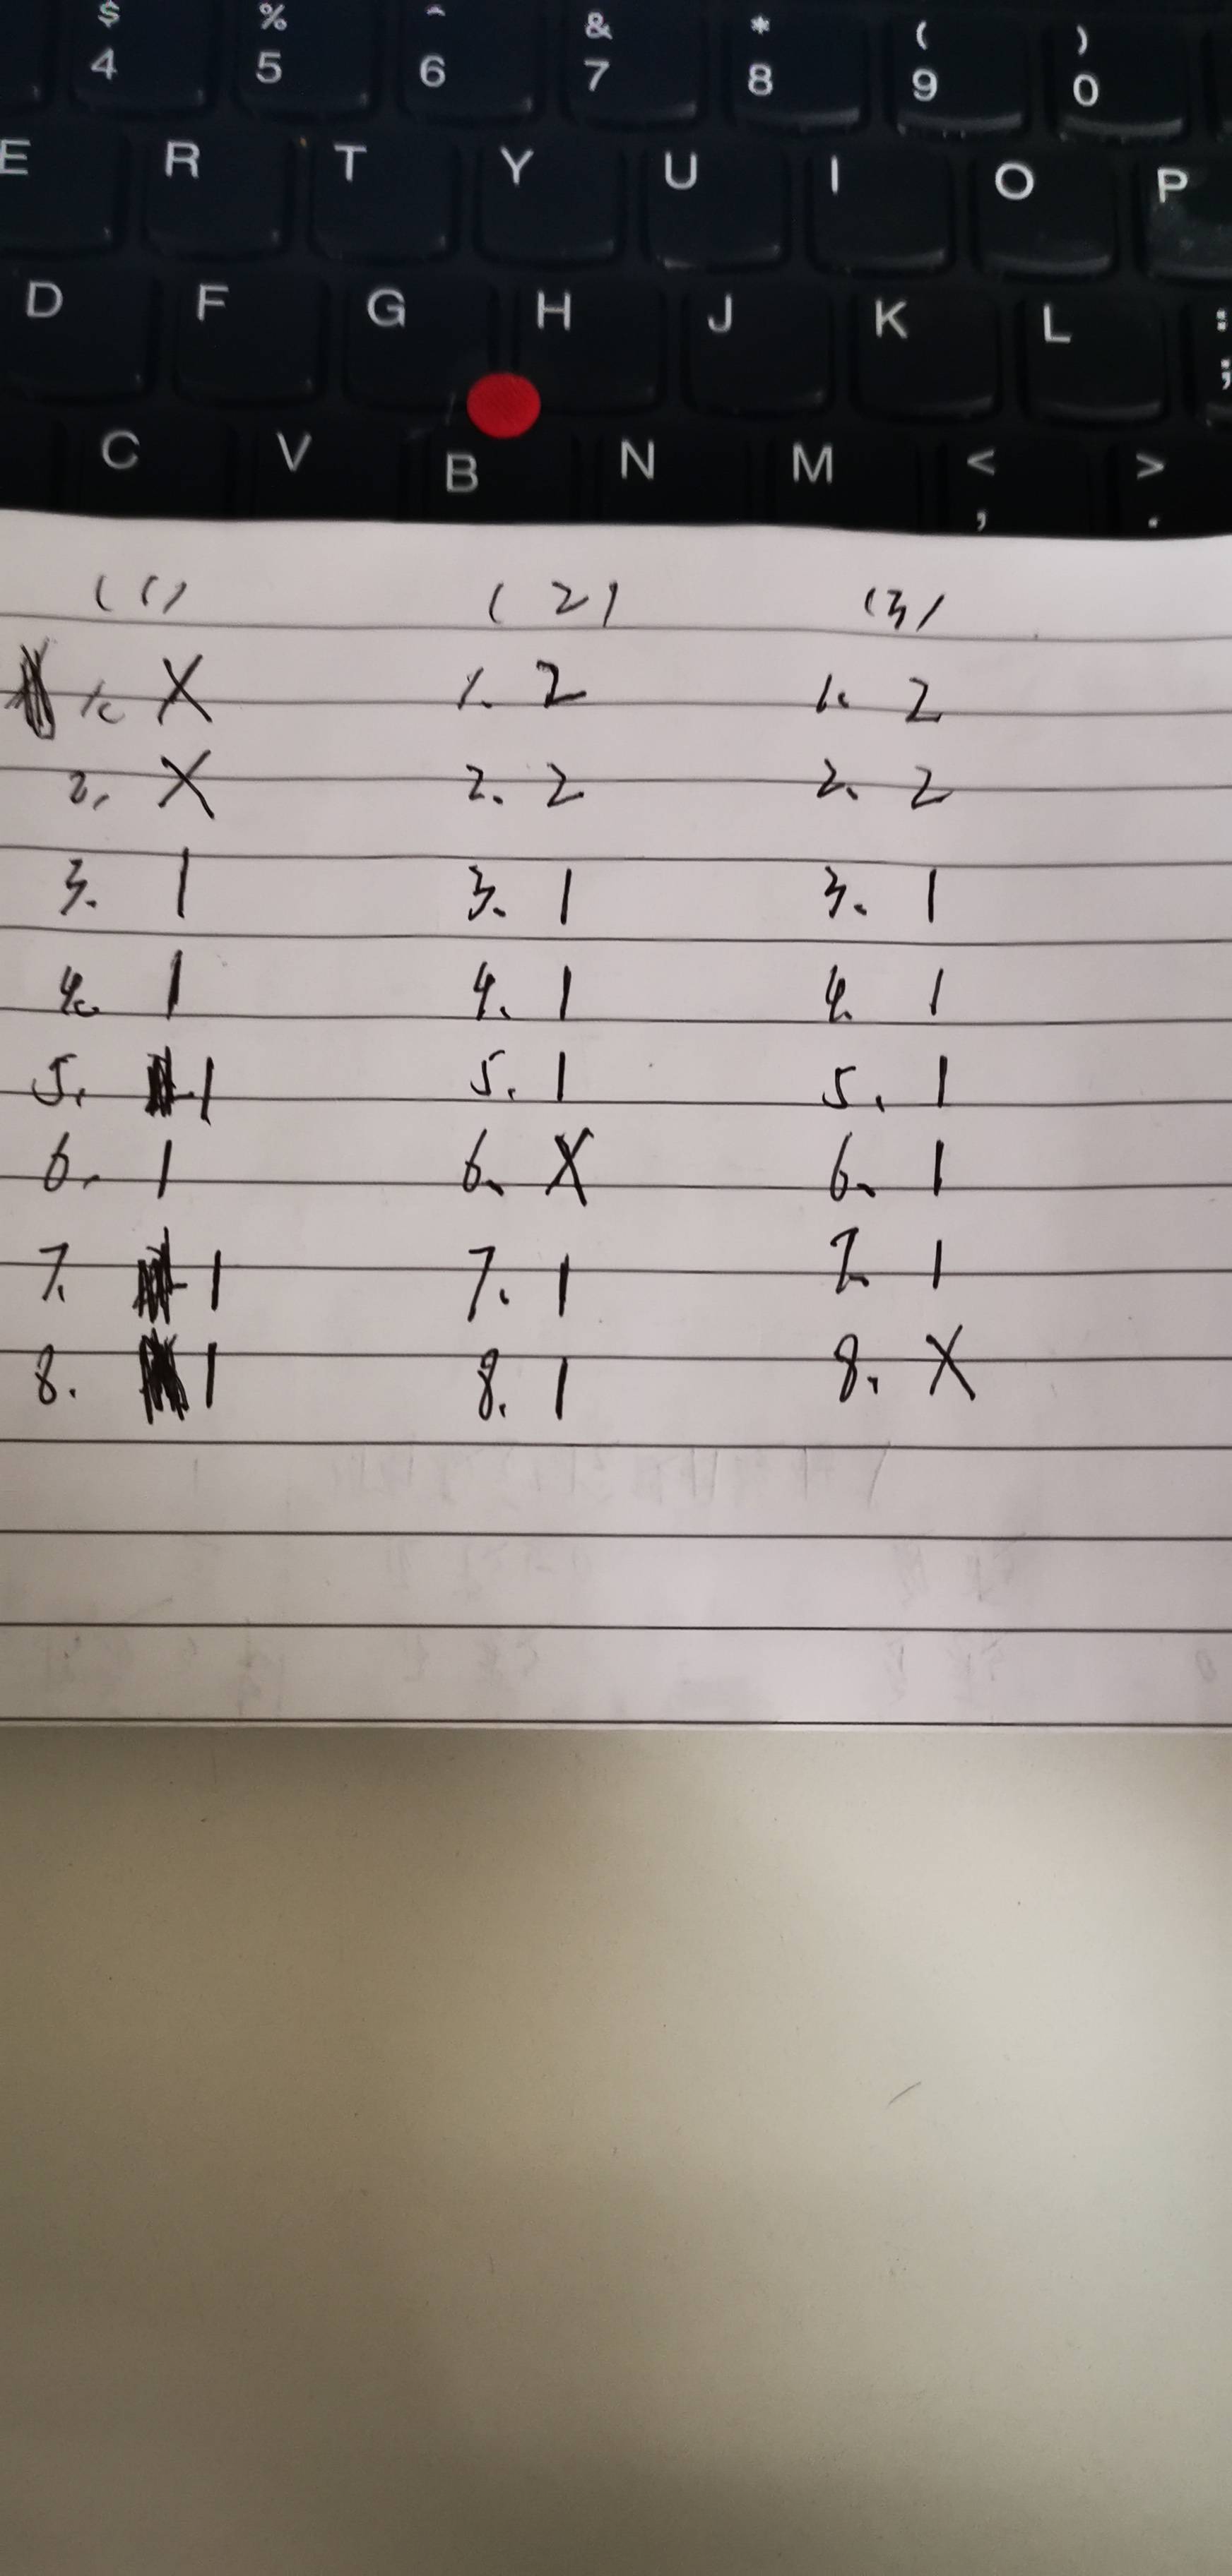 $ % ^ & * ( )
4 5 6 7 8 9 0
E R T Y U I O P
D F G H J K L : ;
C V B N M < , > .
(1) (2) (3)
1. X 1. 2 1. 2
2. X 2. 2 2. 2
3. 1 3. 1 3. 1
4. 1 4. 1 4. 1
5. 1 5. 1 5. 1
6. 1 6. X 6. 1
7. 1 7. 1 7. 1
8. 1 8. 1 8. X